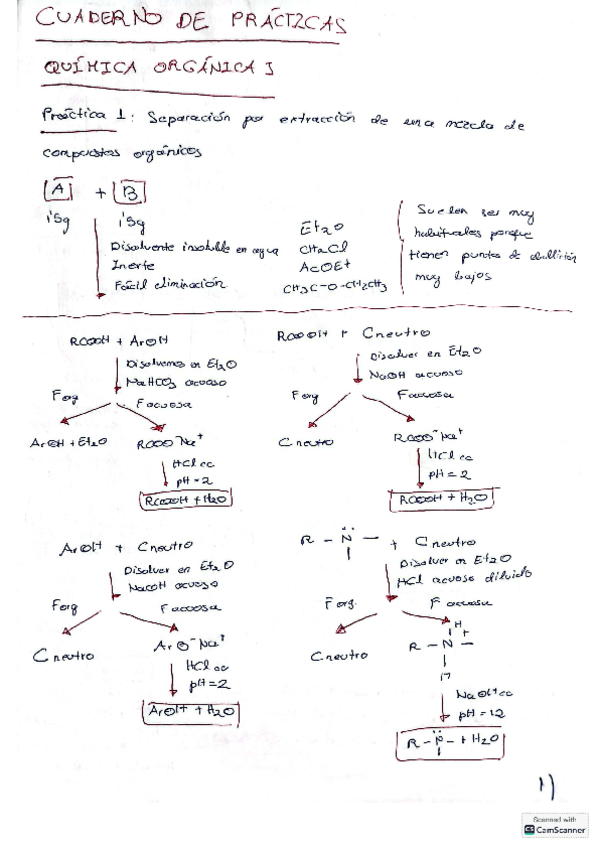 CUADERNO DE PRÁCTICAS
QUÍMICA ORGÁNICA I
Práctica 1: Separación por extracción de una mezcla de
compuestos orgánicos
A + B
1'5g 1'5g
Disolvente insoluble en agua
Inerte
Fácil eliminación
Et2O
CH2Cl
AcOEt
CH3C-O-CH2CH3
Suelen ser muy
habituales porque
tienen puntos de ebullición
muy bajos
RCOOH + ArOH
Disolvemos en Et2O
NaHCO3 acuoso
Forg Facuosa
ArOH + Et2O RCOO-Na+
HCl cc
pH = 2
RCOOH + H2O
RCOOH + Cneutro
Disolver en Et2O
NaOH acuoso
Forg Facuosa
Cneutro RCOO-Na+
HCl cc
pH = 2
RCOOH + H2O
ArOH + Cneutro
Disolver en Et2O
NaOH acuoso
Forg Facuosa
Cneutro ArO-Na+
HCl cc
pH = 2
ArOH + H2O
R - N - + Cneutro
Disolver en Et2O
HCl acuoso diluido
Forg. Facuosa
H
Cneutro R - N -
+
NaOH cc
pH = 12
+ H2O
1)
Scanned with
CS CamScanner